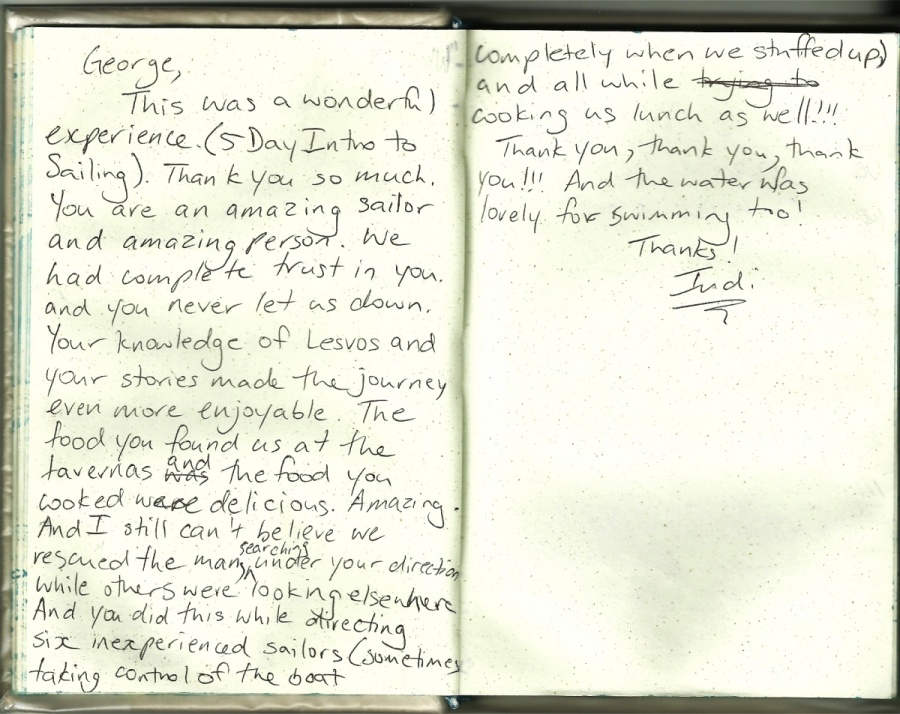 George,
This was a wonderful
experience. (5 Day Intro to
Sailing). Thank you so much.
You are an amazing sailor
and amazing person. We
had complete trust in you.
and you never let us down.
Your knowledge of Lesvos and
your stories made the journey
even more enjoyable. The
food you found us at the
tavernas was and the food you
cooked were delicious. Amazing.
And I still can't believe we
rescued the man, searching under your direction
while others were looking elsewhere
And you did this while directing
six inexperienced sailors (sometimes
taking control of the boat
completely when we stuffed up)
and all while trying to
cooking us lunch as well!!!
Thank you, thank you, thank
you!!! And the water was
lovely for swimming too!
Thanks!
Judi